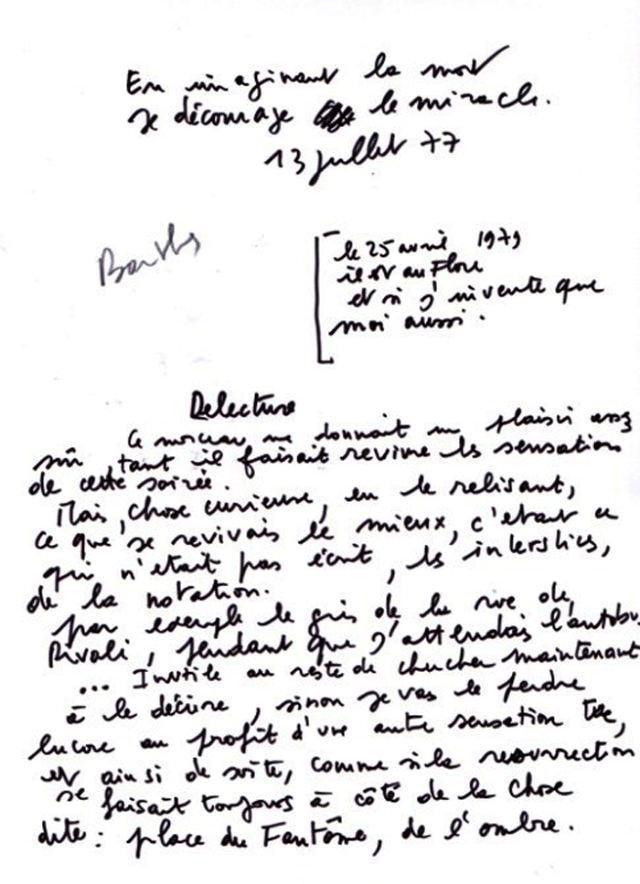 En imaginant la mort
je décourage le miracle.
13 juillet 77
Barthes
le 25 avril 1979
il est au Flore
et si j'invente que
moi aussi.
Relecture
Ce morceau me donnait un plaisir assez
sûr, tant il faisait revivre les sensations
de cette soirée.
Mais, chose curieuse, en le relisant,
ce que je revivais le mieux, c'était ce
qui n'était pas écrit, les interstices,
de la notation.
par exemple le gris de la rue de
Rivoli, pendant que j'attendais l'autobus
... Inutile au reste de chercher maintenant
à le décrire, sinon je vas le perdre
encore au profit d'une autre sensation tue,
et ainsi de suite, comme si la résurrection
se faisait toujours à côté de la chose
dite : place du Fantôme, de l'ombre.